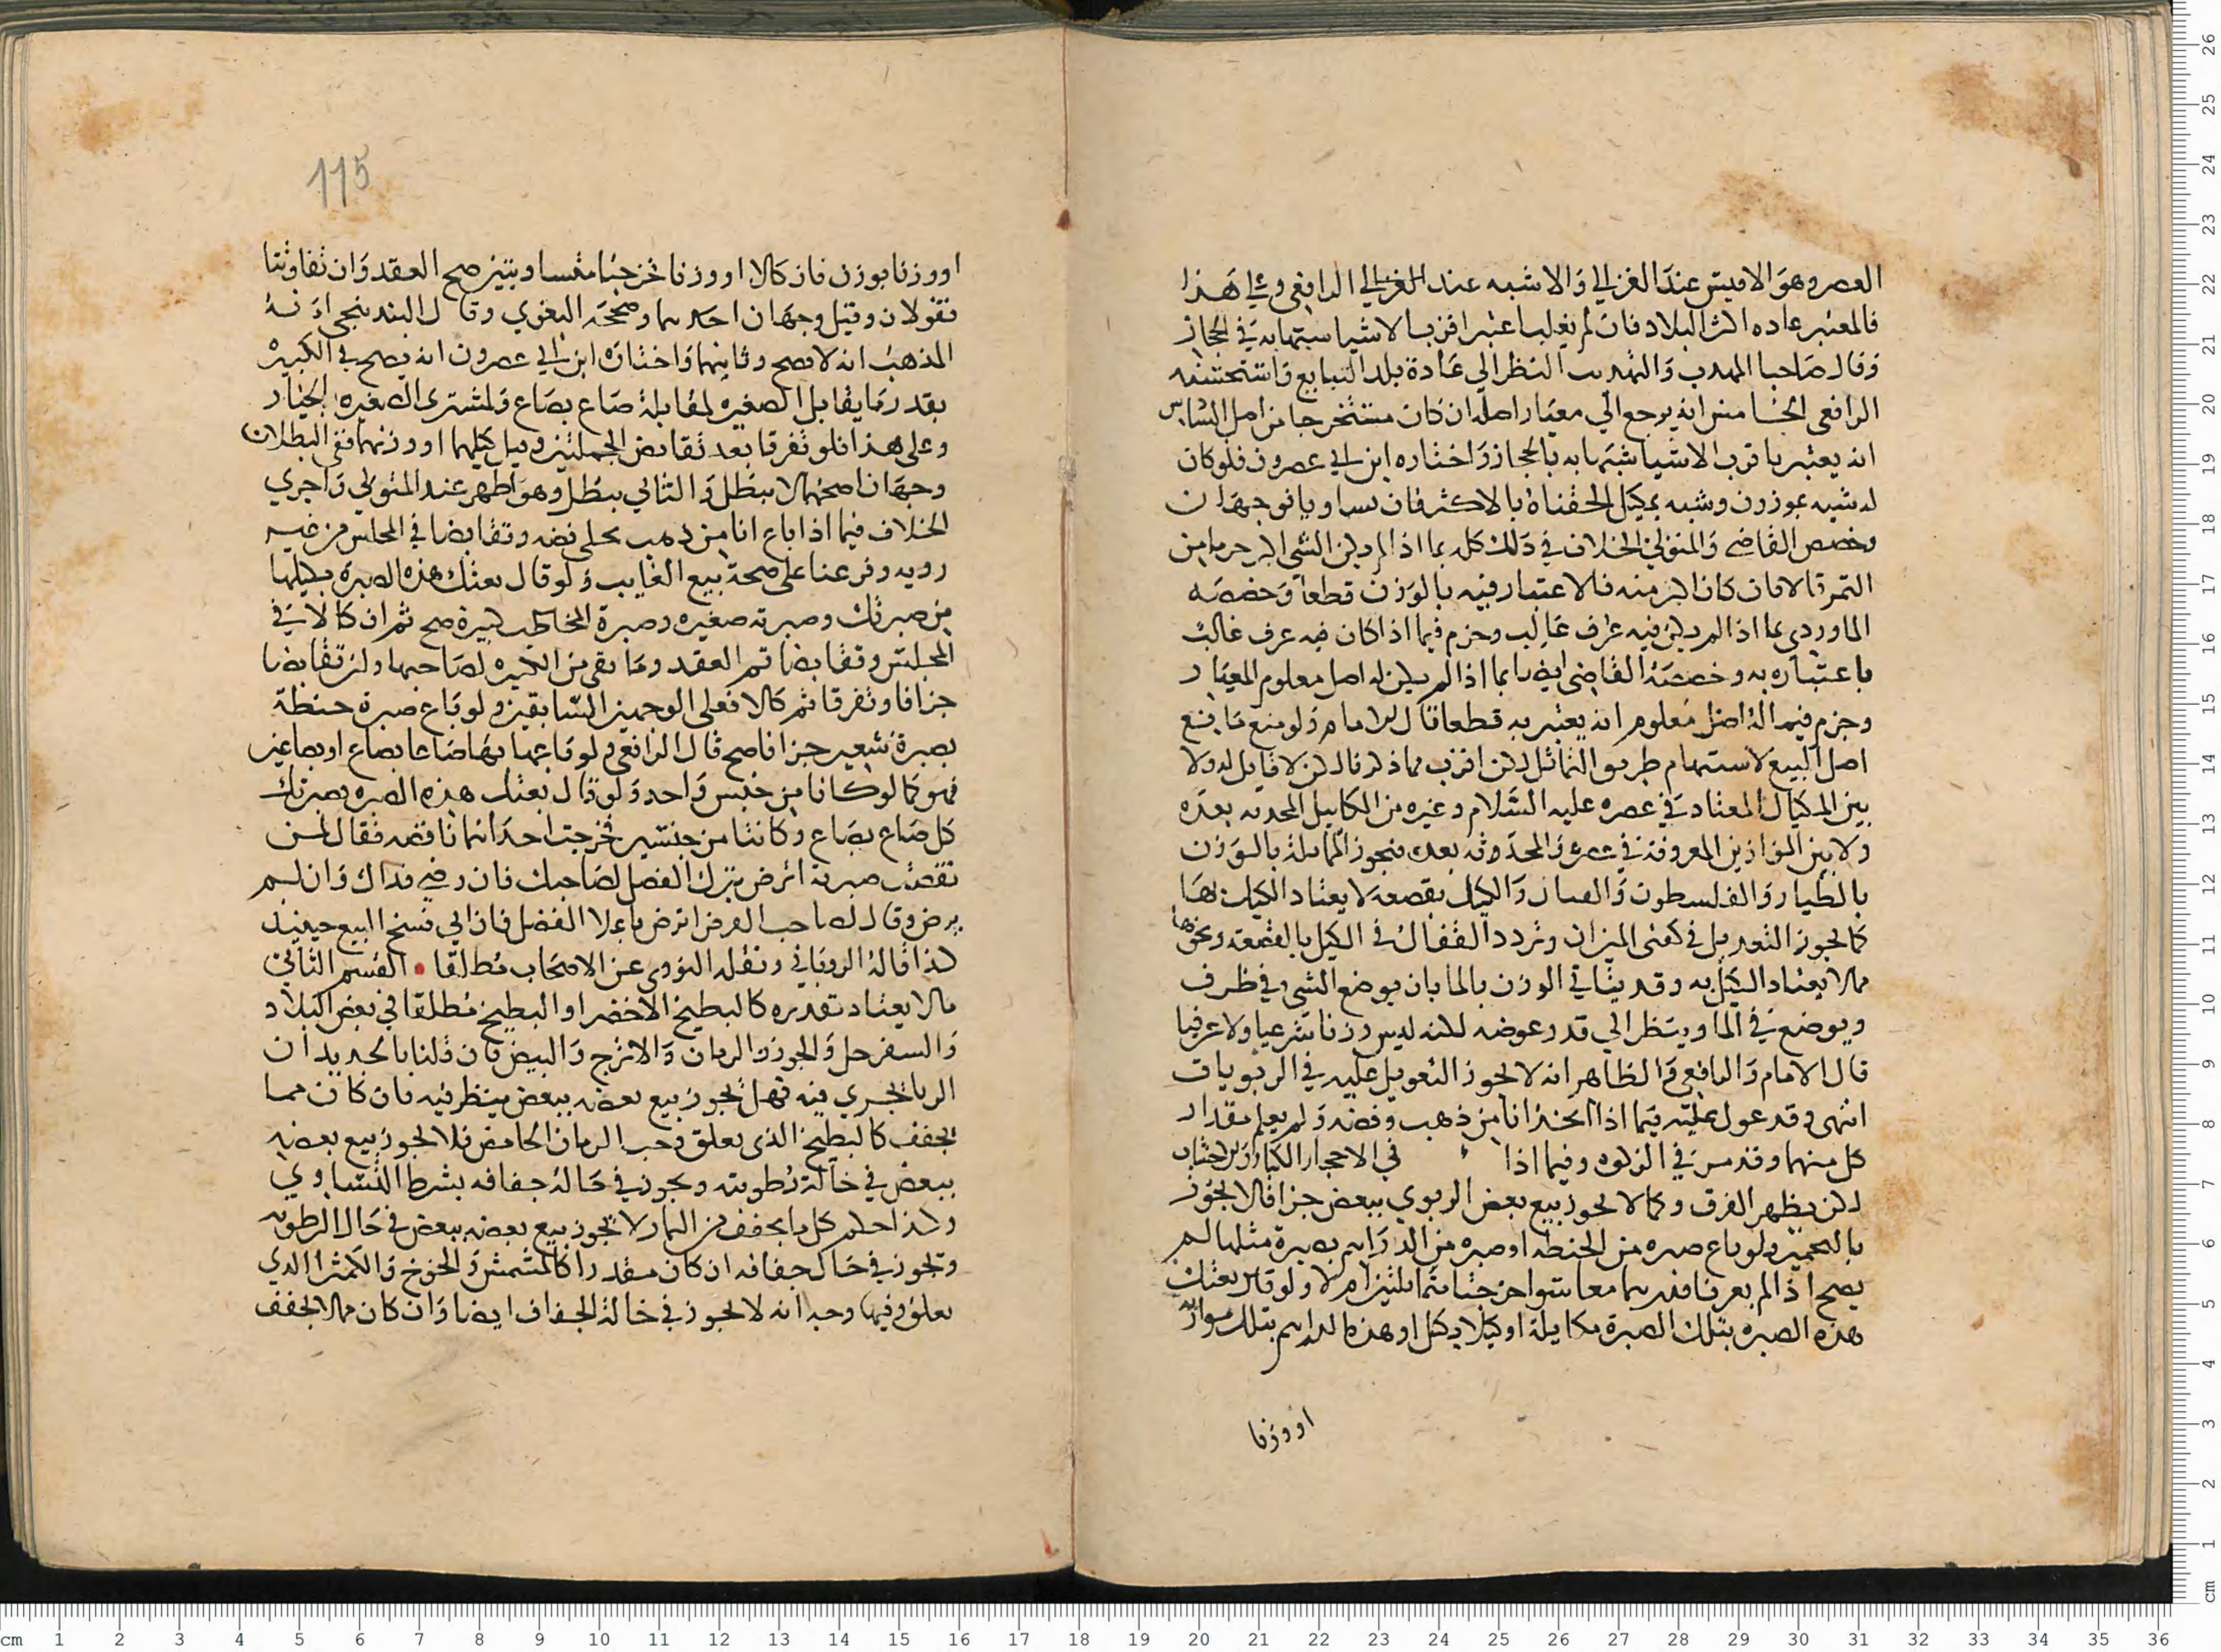 العصر وهو الاقيس عند الغزالي والاشبه عند الغزالي الرافعي وعلى هذا
فالمعتبر عاده اكثر البلاد فان لم يغلب اعتبر اقرب الاشيا شبها به في الحجاز
وقال صاحبا المهدب والتهديب النظر الي عادة بلد التبايع واستحسنه
الرافعي الخامس انه يرجع الي معيار اصله ان كان مستخرجا من اصل السادس
انه يعتبر باقرب الاشيا شبها به بالحجاز واختاره ابن ابي عصرون فلو كان
له شبه بموزون وشبه بمكيل الحقناه بالاكثر فان تساويا فوجهان
وخصص القاضي والمتولي الخلاف في ذلك كله بما اذا لم يكن الشي اكبر جرما من
التمر قالا فان كان اكبر منه فالاعتبار فيه بالوزن قطعا وخصصه
الماوردي بما اذا لم يكن فيه عرف غالب وجزم فيما اذا كان فيه عرف غالب
باعتباره به وخصصه القاضي ايضا بما اذا لم يكن له اصل معلوم المعيار
وجزم فيما له اصل معلوم انه يعتبر به قطعا قال الامام ولو منع مانع
اصل البيع لاستبهام طريق التماثل لكان اقرب مما ذكرنا لكن لا قايل له ولا
بين المكيال المعتاد في عصره عليه السلام وغيره من المكاييل المحدثه بعده
ولا بين الموازين المعروفة في عصره والمحدوثه بعده فيجوز المماثلة بالوزن
بالطيار والفلسطون والقبان والكيل بقصعه لا يعتاد الكيل بها
كما يجوز التعديل في كفتي الميزان وتردد القفال في الكيل بالقصعة ونحوها
مما لا يعتاد الكيل به وقد يتاتي الوزن بالما بان يوضع الشي في ظرف
ويوضع في الما وينظر الي قدر غوصه لكنه ليس وزنا شرعيا ولا عرفيا
قال الامام والرافعي والظاهر انه لا يجوز التعويل عليه في الربويات
انتهى وقد عول عليه فيما اذا اتخذ انا من ذهب وفضه ولم يعلم مقدار
كل منهما وقد مر في الزكوه وفيما اذا في الاحجار الكبار
لكن يظهر الفرق وكما لا يجوز بيع بعض الربوي ببعض جزافا لا يجوز
بالتخمين ولو باع صبره من الحنطه او صبره من الدراهم بصبرة مثلها لم
يصح اذا لم يعرفا قدرهما معا سوا خرجتا متماثلتين ام لا ولو قال بعتك
هذه الصبره بتلك الصبرة مكايلة او كيلا بكيل او هذه الدراهم بتلك موازنه
او وزنا
115
او وزنا بوزن فان كالا او وزنا فخرجتا متساويتين صح العقد وان تفاوتتا
فقولان وقيل وجهان احدهما وصححه البغوي وقال البندنيجي انه
المذهب انه لا يصح وثانيهما واختاره ابن ابي عصرون انه يصح في الكبيره
بقدر ما يقابل الصغيره لمقابلة صاع بصاع ولمشتري الصغيره الخيار
وعلى هذا فلو تفرقا بعد تقابض الجملتين وقبل كيلهما او وزنهما ففي البطلان
وجهان اصحهما لا يبطل والثاني يبطل وهو اظهر عند المتولي واجري
الخلاف فيما اذا باع انا من ذهب بحلي فضه وتقابضا في المجلس من غير
رويه وفرعنا على صحة بيع الغايب ولو قال بعتك هذه الصبرة بكيلها
من صبرتك وصبرته صغيره وصبرة المخاطب كبيرة صح ثم ان كالا في
المجلس وتقابضا تم العقد وما بقى من الكبيره لصاحبها ولئن تقابضا
جزافا وتفرقا ثم كالا فعلى الوجهين السابقين ولو باع صبرة حنطة
بصبرة شعير جزافا صح قال الرافعي ولو باعها بها صاعا بصاع او بصاعين
فهو كما لو كانا من جنس واحد ولو قال بعتك هذه الصبره بصبرتك
كل صاع بصاع وكانتا من جنسين فخرجت احداهما ناقصه فقال لمن
نقصت صبرته اترضى بترك الفضل لصاحبك فان رضي فذاك وان لم
يرض وقال لصاحب الفرض اترض باعلا الفضل فان ابي فسخ البيع حينيذ
كذا قاله الروياني ونقله النووي عن الاصحاب مطلقا القسم الثاني
ما لا يعتاد تقديره كالبطيخ الاخضر او البطيخ مطلقا في بعض البلاد
والسفرجل والجوز والرمان والاترج والبيض فان قلنا بالجديد ان
الربا يجري فيه فهل يجوز بيع بعضه ببعض ينظر فيه فان كان مما
يجفف كالبطيخ الذي يعلق وحب الرمان الحامض فلا يجوز بيع بعضه
ببعض في حالة رطوبته ويجوز في حالة جفافه بشرط التساوي
وكذا حكم كل ما يجفف من الثمار لا يجوز بيع بعضه ببعض في حال الرطوبه
ويجوز في حال جفافه ان كان مقدرا كالمشمش والخوخ والكمثرا الدي
يعلق وفيها وجه انه لا يجوز في حالة الجفاف ايضا وان كان مما لا يجفف